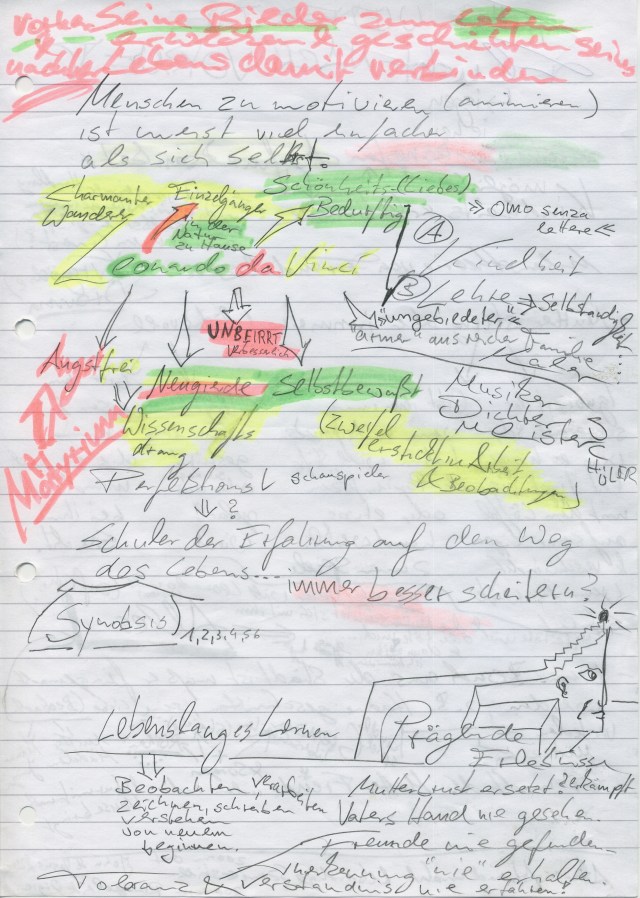 vorher Seine Bilder zum Leben
erwecken & geschichten seines
nachher Lebens damit verbinden
Menschen zu motivieren (animieren)
ist meist viel einfacher
als sich selbst.
Charmanter
Wanderer
Einzelgänger
in der
Natur
zu Hause
Schönheits-(Liebes)
Bedürftig
Leonardo da Vinci
A
» OMO senza
lettere «
Kindheit
B Lehre → Selbständigkeit....
"ungebildeter"
"armer" aus reicher Familie
UNBEIRRT
verbesserlich
Angstfrei
Neugierde Selbstbewußt
Maler
Musiker
Dichter
MEISTER
SCHÜLER
Wissenschafts
drang
(Zweifel
erstickt in Arbeit
& Beobachtungen)
Matyrium
Perfektionist schauspieler
?
Schüler der Erfahrung auf den Weg
des Lebens.... immer besser scheitern?
Synobsis 1,2,3,4,5,6
Lebenslanges Lernen
Prägende
Erlebnisse
Beobachten, verarbeit
zeichnen, schreiben
verstehen
von neuem
beginnen.
Mutterbrust ersetzt. erkämpft
Vaters Hand nie gesehen.
Freunde nie gefunden
Anerkennung "nie" erhalten.
Toleranz & Verständnis nie erfahren!